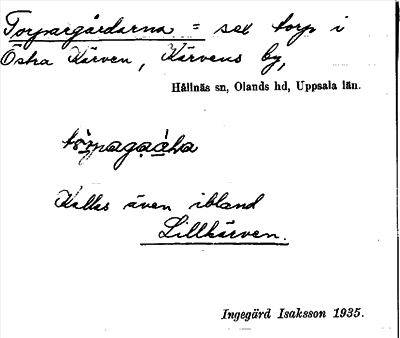 Torpargårdarna = sex torp i
Östra Kärven, Kärvens by,
Hållnäs sn, Olands hd, Uppsala län.
Kallas även ibland
Lillkärven.
Ingegärd Isaksson 1935.